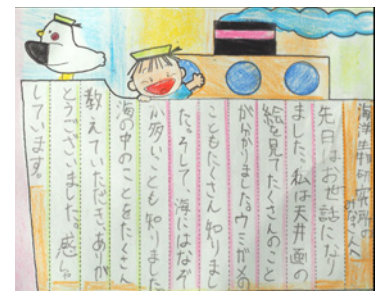 海洋生物研究所の
みなさんへ
先日はお世話になり
ました。私は天井画の
絵を見てたくさんのこと
が分かりました。ウミガメの
こともたくさん知りまし
た。そして、海にはなぞ
が多いことも知りました
海の中のことをたくさん
教えていただきありが
とうございました。感しゃ
しています。